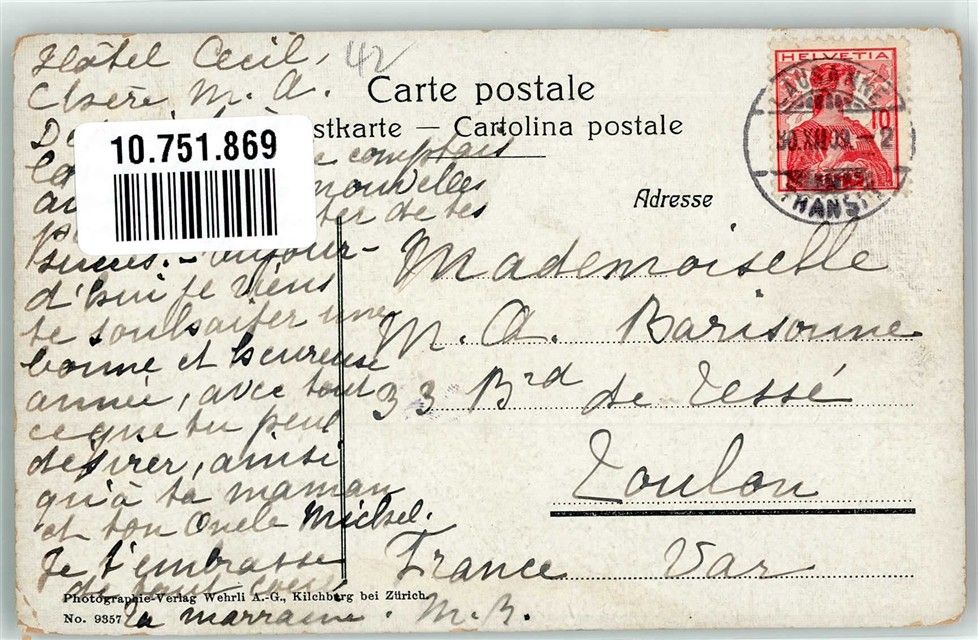 Hôtel Cecil,
42
Chère M. A.
Carte postale
stkarte — Cartolina postale
10.751.869
comptais
nouvelles
de tes
succès. — Aujour-
d'hui je viens
te souhaiter une
bonne et heureuse
année, avec tout
ce que tu peux
désirer, ainsi
qu'à ta maman
et ton Oncle Michel.
Je t'embrasse
de tout cœur
ta marraine. M. R.
HELVETIA
10
LAUSANNE
30.XII.09. — 2
TRANSIT
Adresse
Mademoiselle
M. A. Barisonne
33 Brd de Tessé
Toulon
France Var
Photographie-Verlag Wehrli A.-G., Kilchberg bei Zürich.
No. 9357